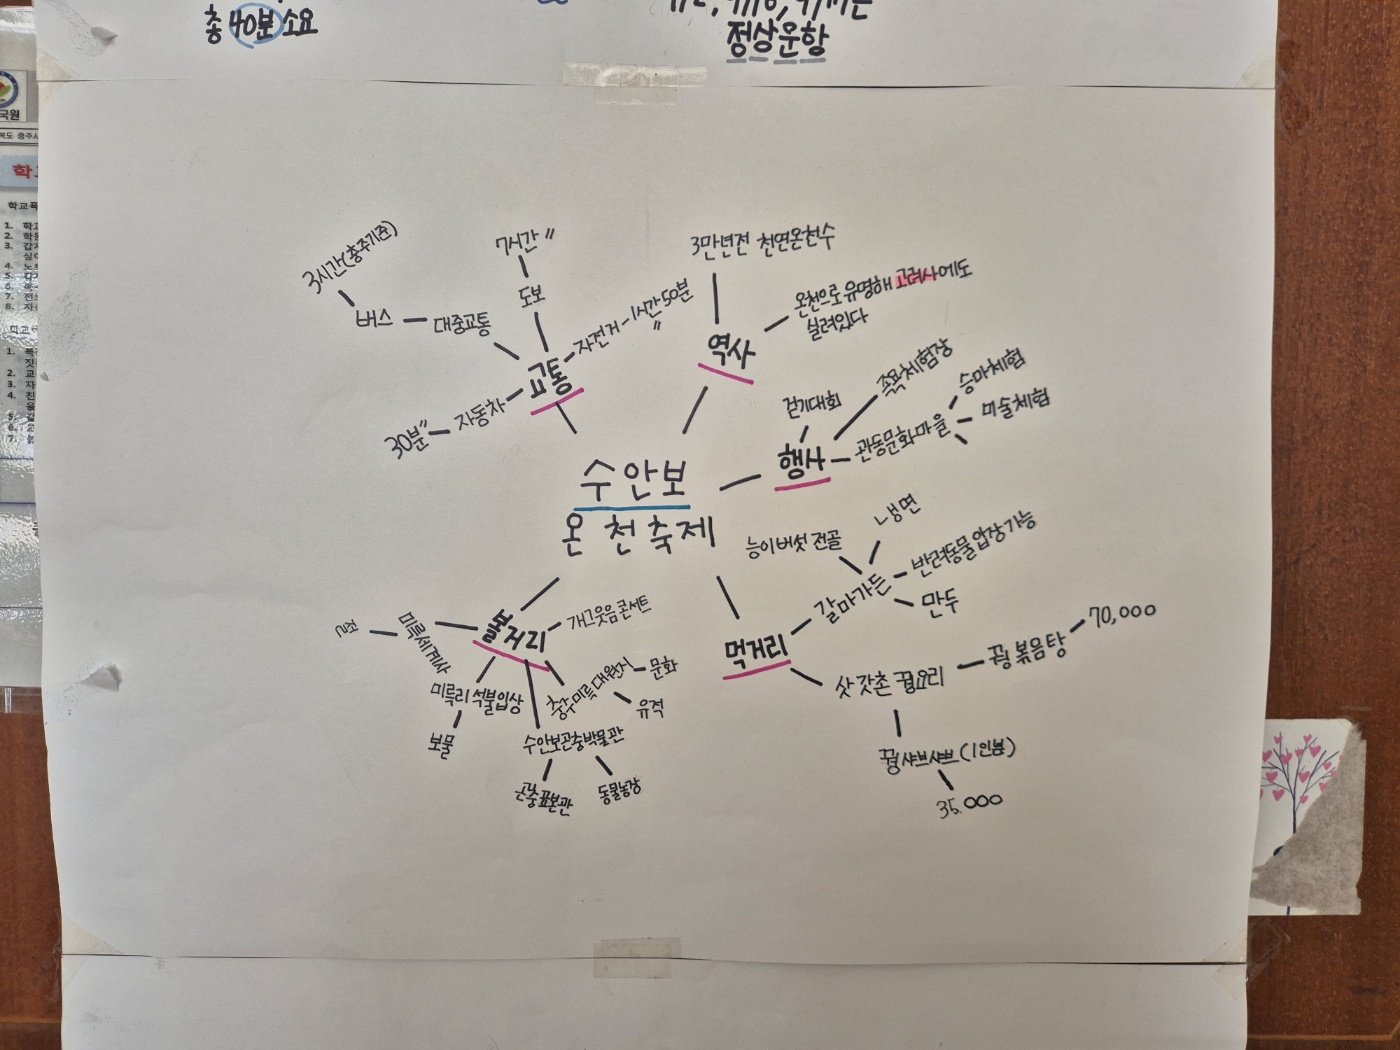 총 40분 소요
정상운항
국원
학교폭
3시간(충주기준)
버스
대중교통
7시간 〃
도보
자전거 - 1시간 50분
〃
교통
자동차
30분〃
3만년전 천연온천수
온천으로 유명해 고려사에도
실려있다
역사
걷기대회
족욕체험장
승마체험
미술체험
관동문화마을
행사
수안보
온천축제
능이버섯 전골
냉면
반려동물 입장 가능
만두
갈마가든
먹거리
삿갓촌 꿩요리
꿩 볶음탕
70,000
꿩 샤브샤브 (1인분)
35.000
볼거리
개그웃음콘서트
미륵세계사
절
미륵리 석불입상
보물
충주 미륵대원지
문화
유적
수안보곤충박물관
곤충표본관
동물농장